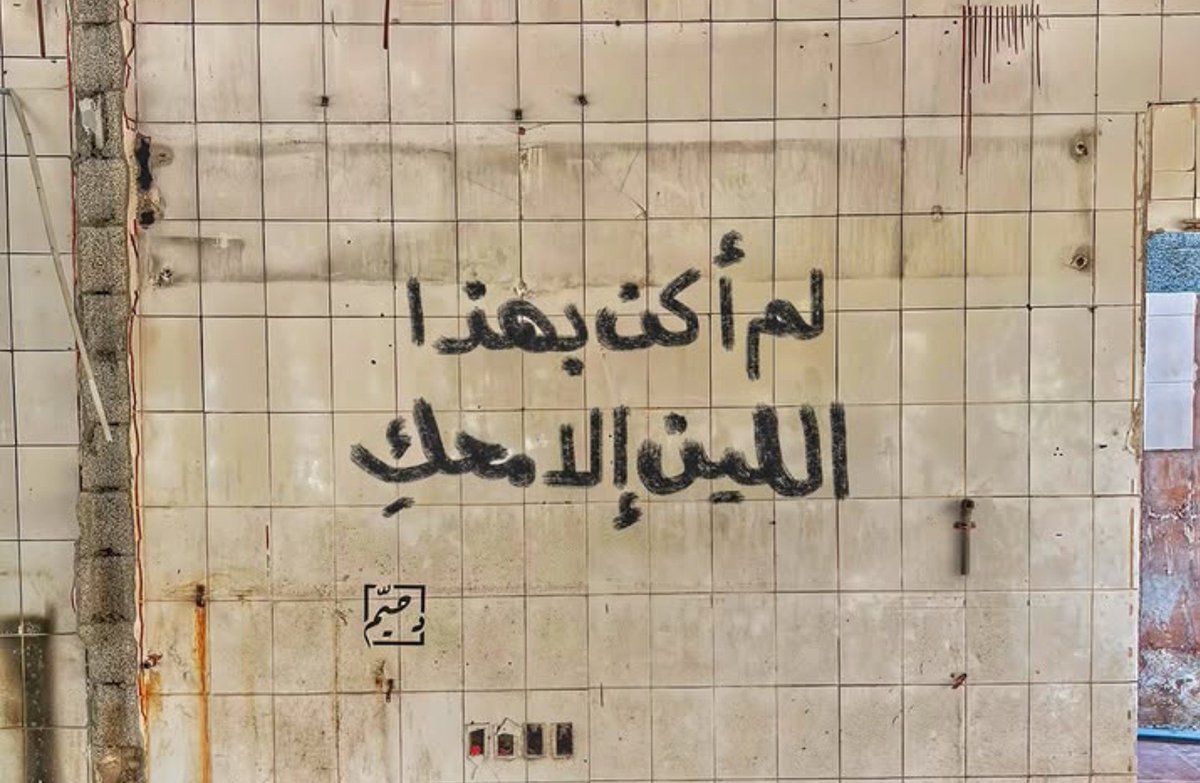 لم أكن بهذا
اللين إلا معكِ